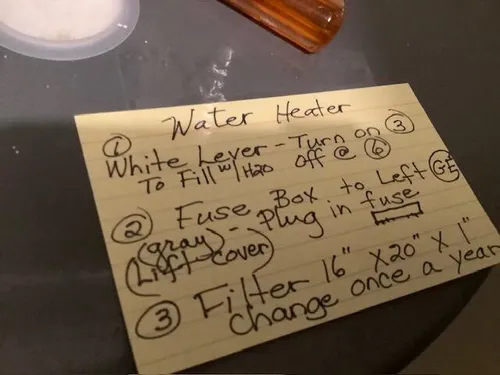 Water Heater
① White Lever - Turn on ③
To Fill w/ H20 off @ ⑥
② Fuse Box to Left GE
(gray) - Plug in fuse
(Lift cover)
③ Filter 16" X20" X 1"
change once a year